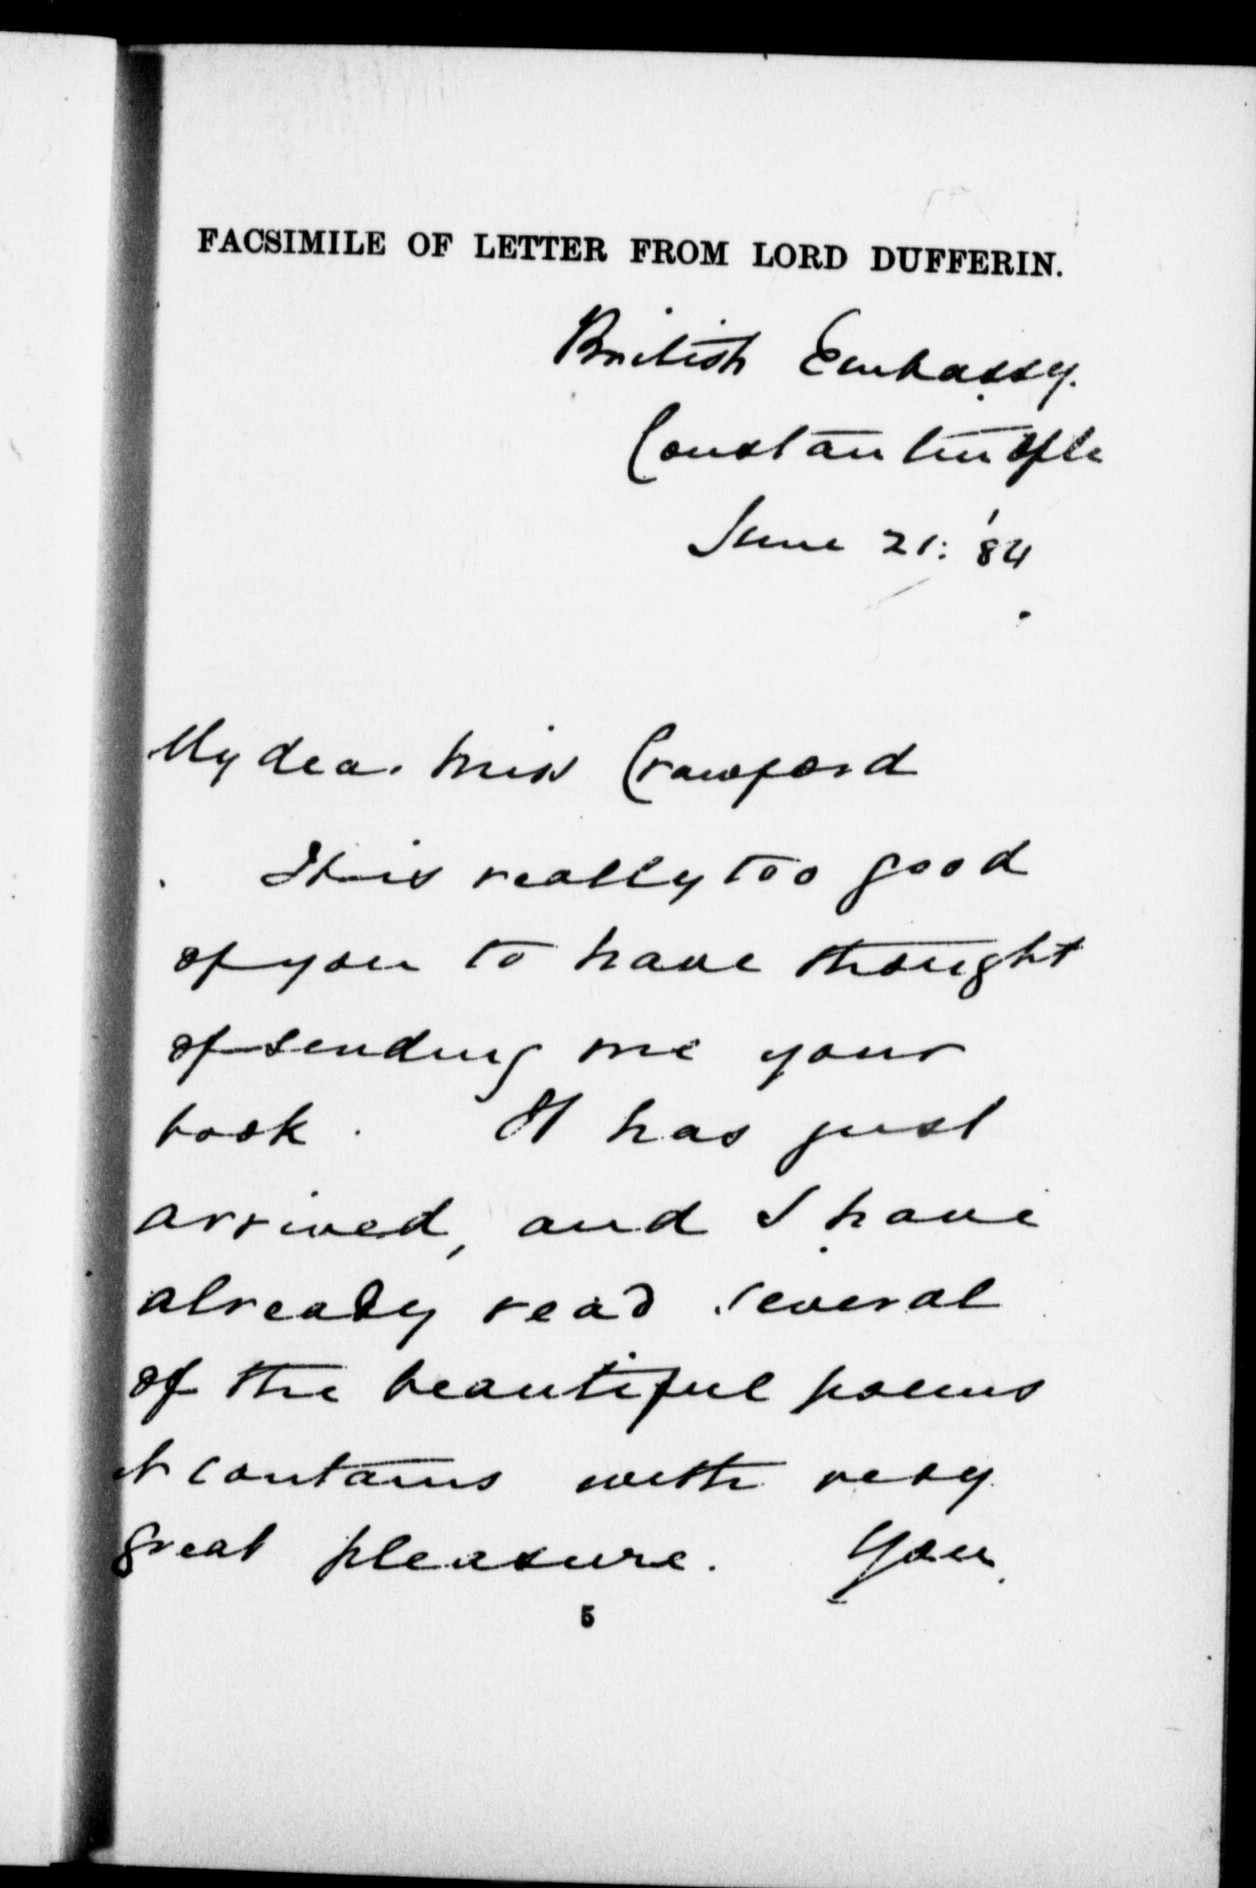 FACSIMILE OF LETTER FROM LORD DUFFERIN.
British Embassy.
Constantinople
June 21: '84
My dear Miss Crawford
It is really too good
of you to have thought
of sending me your
book. It has just
arrived, and I have
already read several
of the beautiful poems
it contains with very
great pleasure. You
5